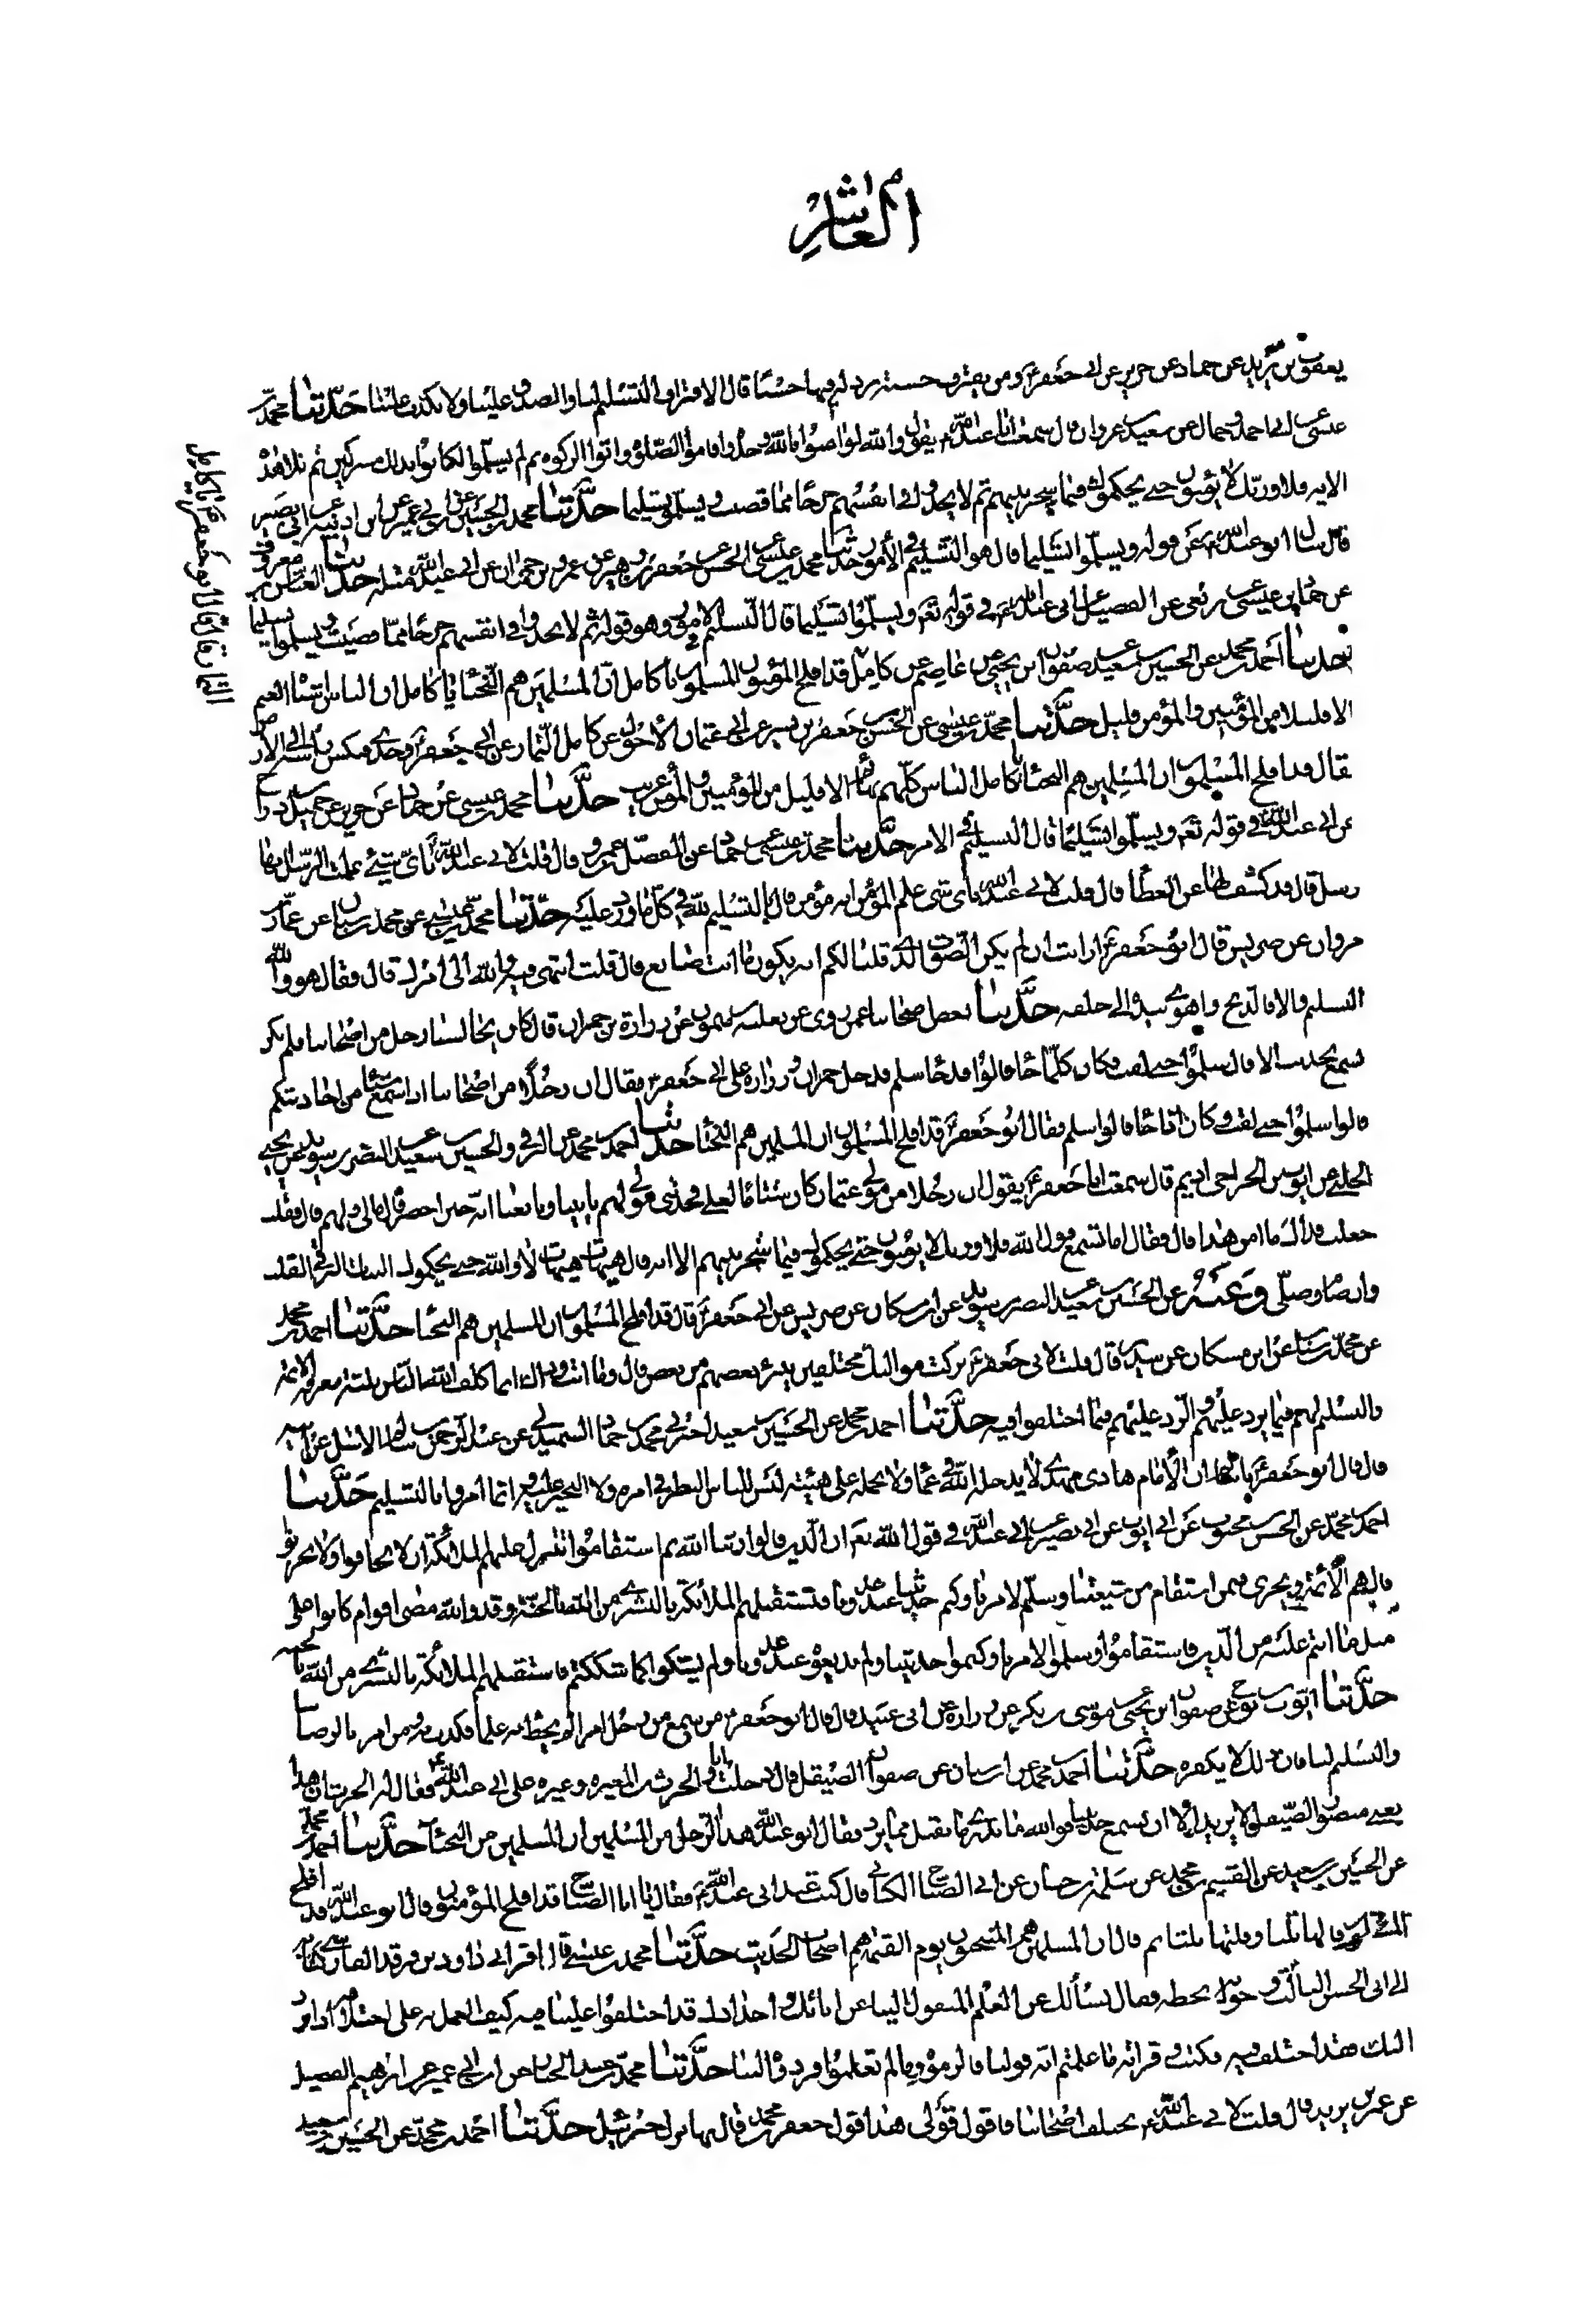 العاشر
يعقوب بن يزيد عن حماد عن حريز عن ابي جعفر ع ومن يقترف حسنة نزد له فيها حسنا قال الاقتراف التسليم لنا والصدق علينا ولا يكذب علينا حدثنا محمد بن
عيسى عن سعيد بن غزوان قال سمعت ابا عبد الله ع يقول والله لو امنوا بالله وحده واقاموا الصلوة واتوا الزكوة ثم لم يسلموا لكانوا بذلك مشركين ثم تلا هذه
الاية فلا وربك لا يؤمنون حتى يحكموك فيما شجر بينهم ثم لا يجدوا في انفسهم حرجا مما قضيت ويسلموا تسليما حدثنا محمد بن الحسين عن ابن ابي عمير عن ابن اذينه عن ابي بصير
قال سال ابو عبد الله ع عن قوله ويسلموا تسليما قال هو التسليم في الامور حدثنا محمد بن عيسى عن الحسن عن جعفر بن زهير عن عمرو بن حمران عن ابي عبد الله ع مثله حدثنا العباس بن معروف
عن حماد بن عيسى عن ربعي عن الفضيل عن ابي عبد الله ع في قوله تع ويسلموا تسليما قال التسليم في الامر وهو قوله ثم لا يجدوا في انفسهم حرجا مما قضيت ويسلموا تسليما
حدثنا احمد بن محمد عن الحسين بن سعيد عن صفوان بن يحيى عن عاصم عن كامل قد افلح المؤمنون المسلمون يا كامل ان المسلمين هم النجباء يا كامل ان الناس اشباه الغنم
الا قليلا من المؤمنين والمؤمن قليل حدثنا محمد بن عيسى عن الحسن بن جعفر بن بشير عن ابي عثمان الاحول عن كامل التمار عن ابي جعفر ع وحدي فنكس راسه الى الارض
فقال قد افلح المسلمون ان المسلمين هم النجباء يا كامل الناس كلهم بهائم الا قليل من المؤمنين والمؤمن غريب حدثنا محمد بن عيسى عن حماد عن حريز عن جميل بن دراج
عن ابي عبد الله ع في قوله تع ويسلموا تسليما قال التسليم في الامر حدثنا محمد بن عيسى عن حماد عن المفضل بن عمرو قال قلت لابي عبد الله ع باي شئ علمت الرسل انها
رسل قال قد كشف لها عن الغطا قال قلت لابي عبد الله باي شئ علم المؤمن انه مؤمن قال بالتسليم لله في كل ما ورد عليه حدثنا محمد بن عيسى عن محمد بن سنان عن عمار بن
مروان عن ضريس قال ابو جعفر ع ارايت ان لم يكن الصوت الذي قلنا لكم انه يكون ما انت صانع قال قلت انتهى فيه والله الى امرك قال فقال هو والله
التسليم والا فالذبح واهوى بيده الى حلقه حدثنا بعض اصحابنا عمن روى عن ثعلبه بن ميمون عن زرارة بن حمران قال كان يجالسنا رجل من اصحابنا فلم يكن
يسمع بحديث الا قال سلموا حتى لقب فكان كلما جاء قالوا قد جاء سلم فدخل حمران وزرارة على ابي جعفر ع فقال ان رجلا من اصحابنا اذا سمع شيئا من احاديثكم
قالوا سلموا حتى لقب وكان اذا جاء قالوا سلم فقال ابو جعفر ع قد افلح المسلمون ان المسلمين هم النجباء حدثنا احمد بن محمد عن البرقي والحسين بن سعيد عن النضر بن سويد عن يحيى
الحلبي عن ايوب بن الحر اخي اديم قال سمعت ابا جعفر ع يقول ان رجلا من مولى عثمان كان شتاما لعلي ع فحدثني مولى لهم ياتينا ويبايعنا انه حين احضر قال مالي ولهم قال فقلت
جعلت فداك ما امن هذا قال فقال اما تسمع قول الله فلا وربك لا يؤمنون حتى يحكموك فيما شجر بينهم الاية قال هيهات هيهات لا والله حتى يحكموك الثبات الشئ في القلب
وان صام وصلى وعنه عن الحسين بن سعيد عن النضر بن سويد عن ابن مسكان عن ضريس عن ابي جعفر ع قال قد افلح المسلمون ان المسلمين هم النجباء حدثنا احمد بن محمد
عن محمد بن سنان عن ابن مسكان عن سدير قال قلت لابي جعفر ع تركت مواليك مختلفين يبرء بعضهم من بعض قال وما انت وذاك انما كلف الله الناس ثلثة معرفة الائمة
والتسليم لهم فيما يرد عليهم والرد عليهم فيما اختلفوا فيه حدثنا احمد بن محمد عن الحسين بن سعيد اخبرني محمد بن حماد السمندلي عن عبد الرحمن بن سالم الاشل عن ابيه
قال قال ابو جعفر ع يا سالم ان الامام هادي مهدي لا يدخله الله في عماء ولا يحمله على هيئة ليس للناس النظر في امره ولا التخير عليه وانما امروا بالتسليم حدثنا
احمد بن محمد عن الحسن بن محبوب عن ابي ايوب عن ابي بصير عن ابي عبد الله ع في قول الله تع ان الذين قالوا ربنا الله ثم استقاموا تتنزل عليهم الملائكة ان لا تخافوا ولا تحزنوا
قال هم الائمة ويجرى فيمن استقام من شيعتنا وسلم لامرنا وكتم حديثنا عند عدونا فتستقبلهم الملائكة بالبشرى من الله بالجنة وقد والله مضى اقوام كانوا على
مثل ما انتم عليه من الدين فاستقاموا وسلموا لامرنا وكتموا حديثنا ولم يذيعوه عند عدونا ولم يشكوا كما شككتم فاستقبلهم الملائكة بالبشرى من الله بالجنة
حدثنا ايوب بن نوح عن صفوان بن يحيى عن موسى بن بكر عن زرارة عن ابي عبيد قال قال ابو جعفر ع من سمع من رجل امرا لم يحط به علما فكذب به ومن امر بالرضا
والتسليم لنا فان ذلك لا يكفره حدثنا احمد بن محمد عن ابن سنان عن صفوان الصيقل قال دخلت انا والحرث بن المغيرة وغيره على ابي عبد الله ع فقال له الحرث ان هذا
يعنى منصور الصيقل لا يريد الا ان يسمع حديثنا فوالله ما يدري ما يقبل مما يرد فقال ابو عبد الله هذا الرجل من المسلمين ان المسلمين من النجباء حدثنا احمد بن محمد
عن الحسين بن سعيد عن القسيم بن محمد عن سلمة بن حيان عن ابي الصباح الكناني قال كنت عند ابي عبد الله ع فقال يا ابا الصباح قد افلح المؤمنون قال ابو عبد الله قد افلح
المسلمون قالها ثلثا وقلتها ثلثا ثم قال ان المسلمين هم المنتجبون يوم القيمة هم اصحاب الحديث حدثنا محمد بن عيسى قال اقراني داود بن فرقد الفارسي كتابه
الى ابي الحسن الثالث ع وجوابه بخطه فقال نسألك عن العلم المنقول الينا عن ابائك واجدادك قد اختلفوا علينا فيه كيف العمل به على اختلافه اذا نرد
اليك فقد اختلف فيه فكتب وقراته ما علمتم انه قولنا فالزموه وما لم تعلموا فردوه الينا حدثنا محمد بن عبد الجبار عن ابن ابي عمير عن ابراهيم بن الفضيل
عن عمر بن يزيد قال قلت لابي عبد الله ع يختلف اصحابنا فاقول قولى هذا قول جعفر بن محمد قال بها نزل جبرئيل حدثنا احمد بن محمد عن الحسين بن سعيد